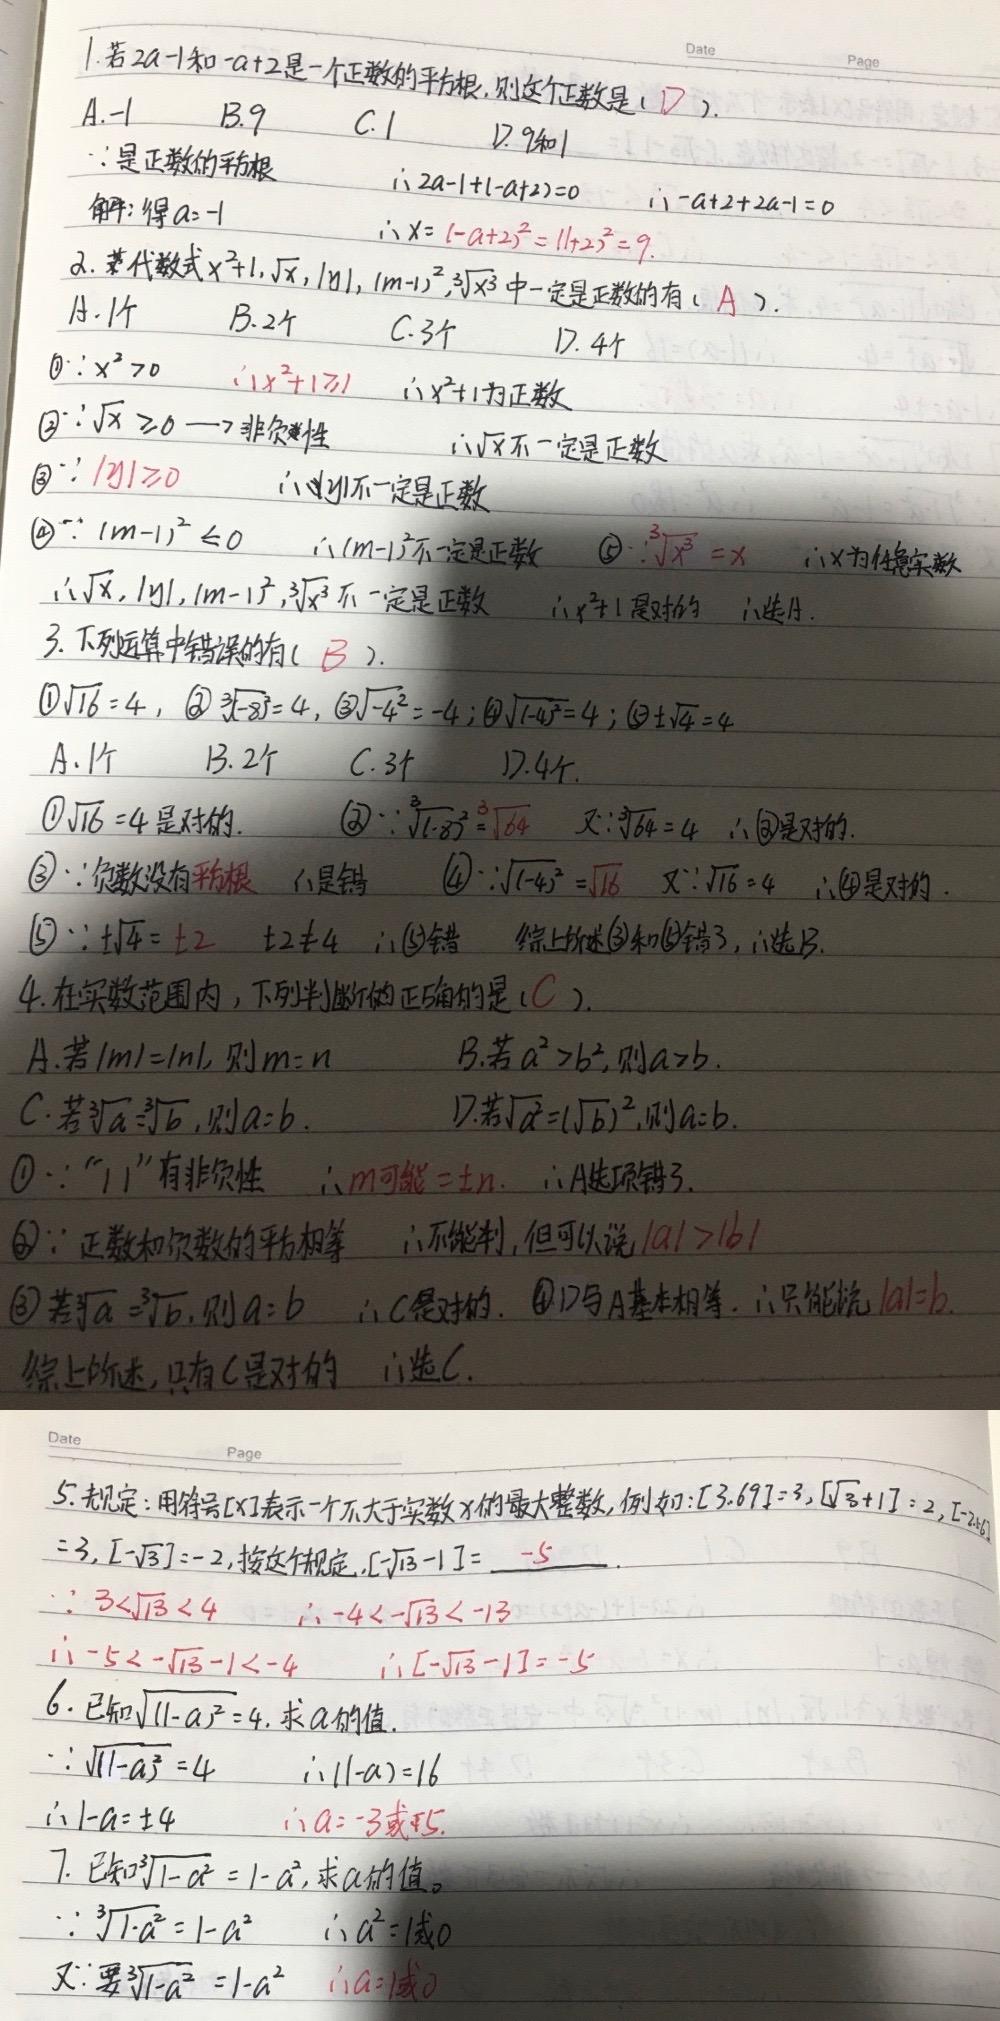 Date Page
1.若2a-1和-a+2是一个正数的平方根,则这个正数是(D).
A.-1 B.9 C.1 D.9和1
∵是正数的平方根 ∴2a-1+(-a+2)=0 ∴-a+2+2a-1=0
解得a=-1 ∴x=(-a+2)²=(1+2)²=9.
2.若代数式x²+1,√x,|y|,(m-1)²,³√x³中一定是正数的有(A).
A.1个 B.2个 C.3个 D.4个
①∵x²>0 ∴x²+1≥1 ∴x²+1为正数
②∵√x≥0→非负性 ∴√x不一定是正数
③∵|y|≥0 ∴|y|不一定是正数
④∵(m-1)²≤0 ∴(m-1)²不一定是正数 ⑤∵³√x³=x ∴x为任意实数
∴√x,|y|,(m-1)²,³√x³不一定是正数 ∴x²+1是对的 ∴选A.
3.下列运算中错误的有(B).
①√16=4,②³√(-8)²=4,③√-4²=-4;④√(-4)²=4;⑤±√4=4
A.1个 B.2个 C.3个 D.4个.
①√16=4是对的. ②∵³√(-8)²=³√64 又∵³√64=4 ∴②是对的.
③∵负数没有平方根 ∴是错 ④∵√(-4)²=√16 又∵√16=4 ∴④是对的.
⑤∵±√4=±2 ±2≠4 ∴⑤错 综上所述③和⑤错了,∴选B.
4.在实数范围内,下列判断的正确的是(C).
A.若|m|=|n|,则m=n B.若a²>b²,则a>b.
C.若³√a=³√b,则a=b. D.若√a²=(√b)²,则a=b.
①∵“||”有非负性 ∴m可能=±n. ∴A选项错了.
②∵正数和负数的平方相等 ∴不能判,但可以说|a|>|b|
③若³√a=³√b,则a=b ∴C是对的. ④D与A基本相等.∴只能说|a|=b.
综上所述,只有C是对的 ∴选C.
Date Page
5.规定:用符号[x]表示一个不大于实数x的最大整数,例如:[3.69]=3,[√3+1]=2,[-2.56]
=3,[-√3]=-2,按这个规定,[-√13-1]=-5.
∵3<√13<4 ∴-4<-√13<-13
∴-5<-√13-1<-4 ∴[-√13-1]=-5
6.已知√(1-a)²=4.求a的值.
∵√(1-a)²=4 ∴(1-a)=16
∴1-a=±4 ∴a=-3或5.
7.已知³√1-a²=1-a²,求a的值。
∵³√1-a²=1-a² ∴a²=1或0
又∵要³√1-a²=1-a² ∴a=1或0